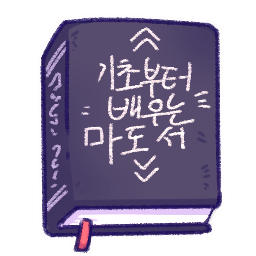 기초부터
배우는
마도서